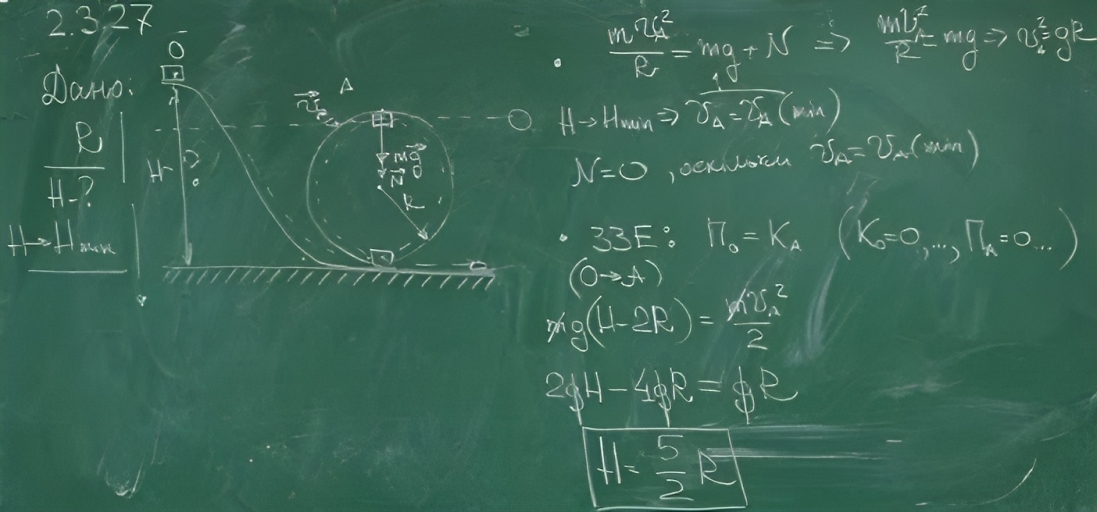 2.3.27
Дано:
R
H-?
H→Hmin
O
H-?
A
v⃗A
mg⃗
N⃗
R
O
mvA²/R = mg + N ⇒ mvA²/R = mg ⇒ vA² = gR
H→Hmin ⇒ vA = vA(min)
N=0, оскільки vA = vA(min)
ЗЗЕ: П₀ = KA (K₀=0,..., ПA=0...)
(O→A)
mg(H-2R) = mvA²/2
2gH - 4gR = gR
H = 5/2 R